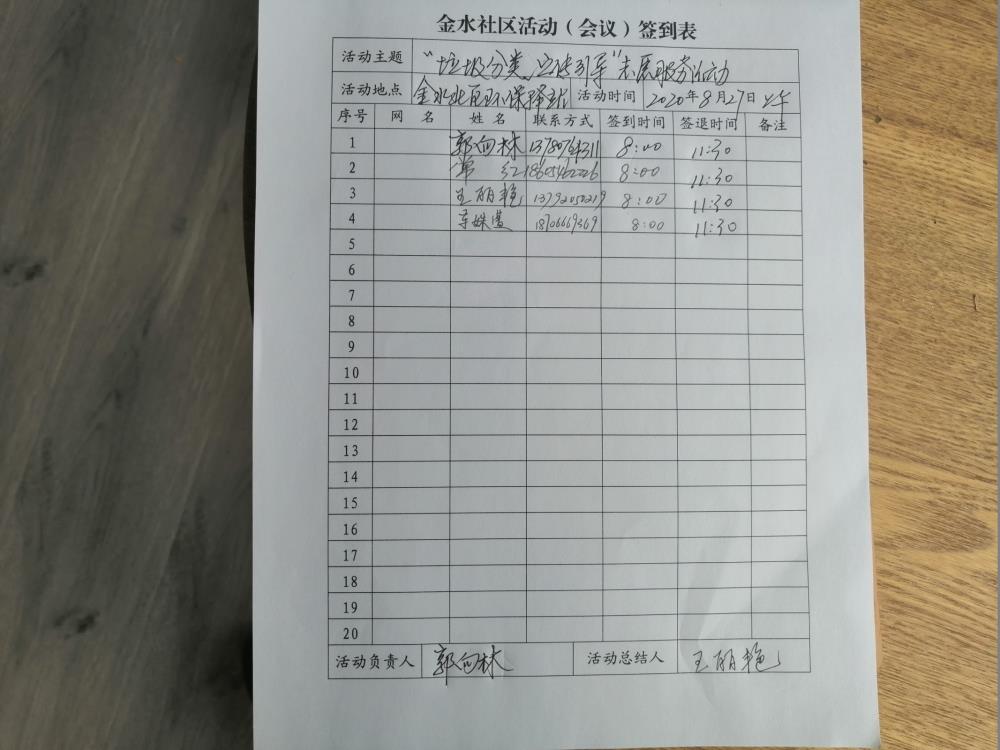 金水社区活动（会议）签到表
活动主题 "垃圾分类宣传引导"志愿服务活动
活动地点 金水北区环保驿站 活动时间 2020年8月27日上午
序号 网名 姓名 联系方式 签到时间 签退时间 备注
1 郭向林 8:00 11:30
2 常红 18605462226 8:00 11:30
3 王丽艳 13792050219 8:00 11:30
4 18706669369 8:00 11:30
5
6
7
8
9
10
11
12
13
14
15
16
17
18
19
20
活动负责人 郭向林 活动总结人 王丽艳